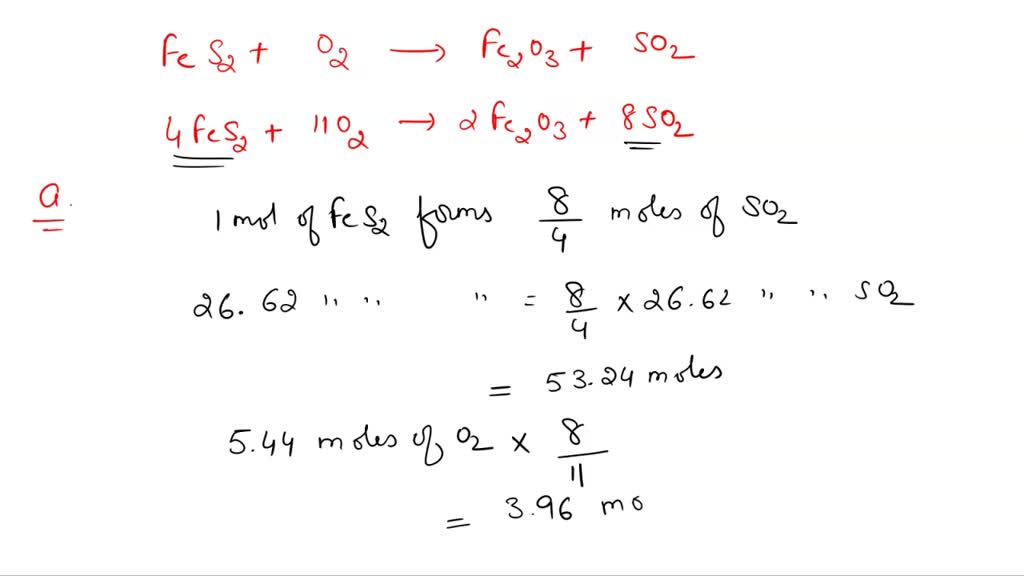 FeS₂ + O₂ → Fe₂O₃ + SO₂
4FeS₂ + 11O₂ → 2Fe₂O₃ + 8SO₂
a.
1 mol of FeS₂ forms 8/4 moles of SO₂
26.62 " " " = 8/4 × 26.62 " " SO₂
= 53.24 moles
5.44 moles of O₂ × 8/11
= 3.96 mo